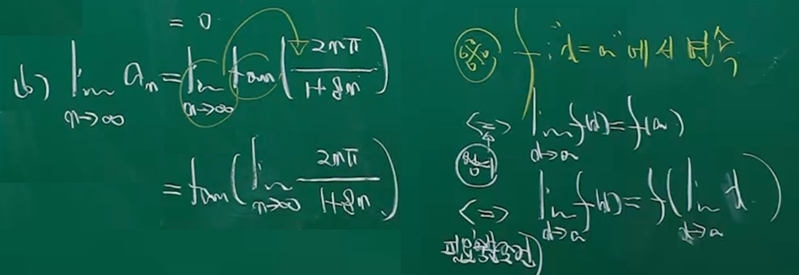 = 0
b) lim n→∞ aₙ = lim n→∞ tan(2nπ / 1+8n)
= tan(lim n→∞ 2nπ / 1+8n)
f: "x=a"에서 연속
<=> lim x→a f(x) = f(a)
<=> lim x→a f(x) = f(lim x→a x)